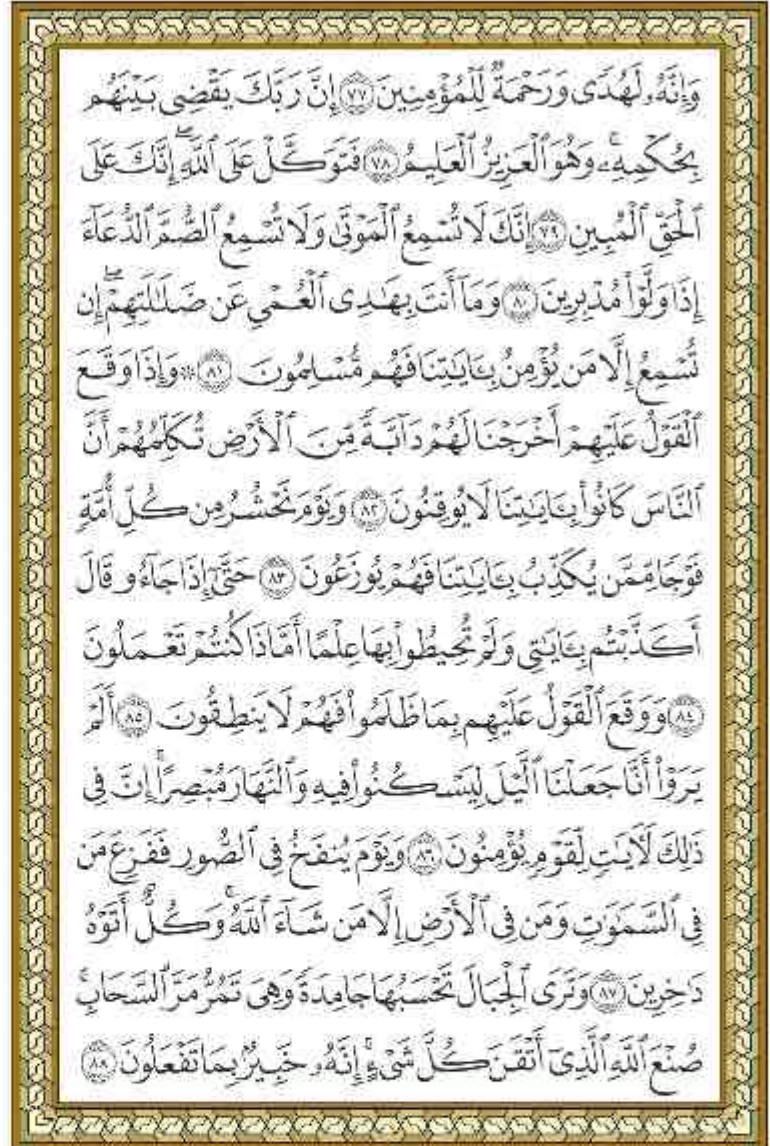 وَإِنَّهُۥ لَهُدًى وَرَحْمَةٌ لِّلْمُؤْمِنِينَ ٧٧ إِنَّ رَبَّكَ يَقْضِى بَيْنَهُم
بِحُكْمِهِۦ ۚ وَهُوَ ٱلْعَزِيزُ ٱلْعَلِيمُ ٧٨ فَتَوَكَّلْ عَلَى ٱللَّهِ ۖ إِنَّكَ عَلَى
ٱلْحَقِّ ٱلْمُبِينِ ٧٩ إِنَّكَ لَا تُسْمِعُ ٱلْمَوْتَىٰ وَلَا تُسْمِعُ ٱلصُّمَّ ٱلدُّعَآءَ
إِذَا وَلَّوْا۟ مُدْبِرِينَ ٨٠ وَمَآ أَنتَ بِهَـٰدِى ٱلْعُمْىِ عَن ضَلَـٰلَتِهِمْ ۖ إِن
تُسْمِعُ إِلَّا مَن يُؤْمِنُ بِـَٔايَـٰتِنَا فَهُم مُّسْلِمُونَ ٨١ ۞ وَإِذَا وَقَعَ
ٱلْقَوْلُ عَلَيْهِمْ أَخْرَجْنَا لَهُمْ دَآبَّةً مِّنَ ٱلْأَرْضِ تُكَلِّمُهُمْ أَنَّ
ٱلنَّاسَ كَانُوا۟ بِـَٔايَـٰتِنَا لَا يُوقِنُونَ ٨٢ وَيَوْمَ نَحْشُرُ مِن كُلِّ أُمَّةٍ
فَوْجًا مِّمَّن يُكَذِّبُ بِـَٔايَـٰتِنَا فَهُمْ يُوزَعُونَ ٨٣ حَتَّىٰٓ إِذَا جَآءُو قَالَ
أَكَذَّبْتُم بِـَٔايَـٰتِى وَلَمْ تُحِيطُوا۟ بِهَا عِلْمًا أَمَّاذَا كُنتُمْ تَعْمَلُونَ
٨٤ وَوَقَعَ ٱلْقَوْلُ عَلَيْهِم بِمَا ظَلَمُوا۟ فَهُمْ لَا يَنطِقُونَ ٨٥ أَلَمْ
يَرَوْا۟ أَنَّا جَعَلْنَا ٱلَّيْلَ لِيَسْكُنُوا۟ فِيهِ وَٱلنَّهَارَ مُبْصِرًا ۚ إِنَّ فِى
ذَٰلِكَ لَـَٔايَـٰتٍ لِّقَوْمٍ يُؤْمِنُونَ ٨٦ وَيَوْمَ يُنفَخُ فِى ٱلصُّورِ فَفَزِعَ مَن
فِى ٱلسَّمَـٰوَٰتِ وَمَن فِى ٱلْأَرْضِ إِلَّا مَن شَآءَ ٱللَّهُ ۚ وَكُلٌّ أَتَوْهُ
دَٰخِرِينَ ٨٧ وَتَرَى ٱلْجِبَالَ تَحْسَبُهَا جَامِدَةً وَهِىَ تَمُرُّ مَرَّ ٱلسَّحَابِ ۚ
صُنْعَ ٱللَّهِ ٱلَّذِىٓ أَتْقَنَ كُلَّ شَىْءٍ ۚ إِنَّهُۥ خَبِيرٌۢ بِمَا تَفْعَلُونَ ٨٨